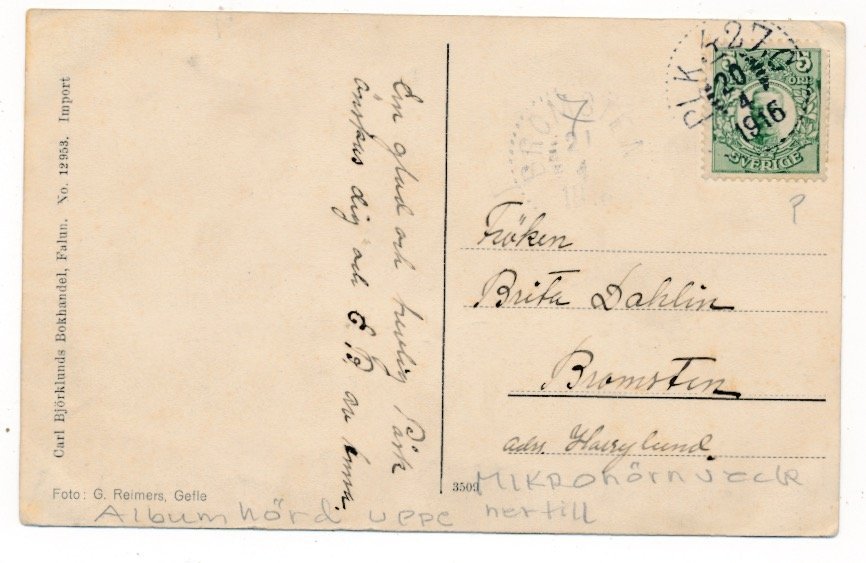 Carl Björklunds Bokhandel, Falun. No. 12953. Import
Foto: G. Reimers, Gefle
En glad och hurlig Påsk
önskas dig och E. B. av Emma.
PLK 427
20
4
1916
5
ÖRE
SVERIGE
BRO
21
4
?
Fröken
Brita Dahlin
Bromsten
adr. Haglund.
3509
MIKROhörnveck
hertill
Albumhörd uppe